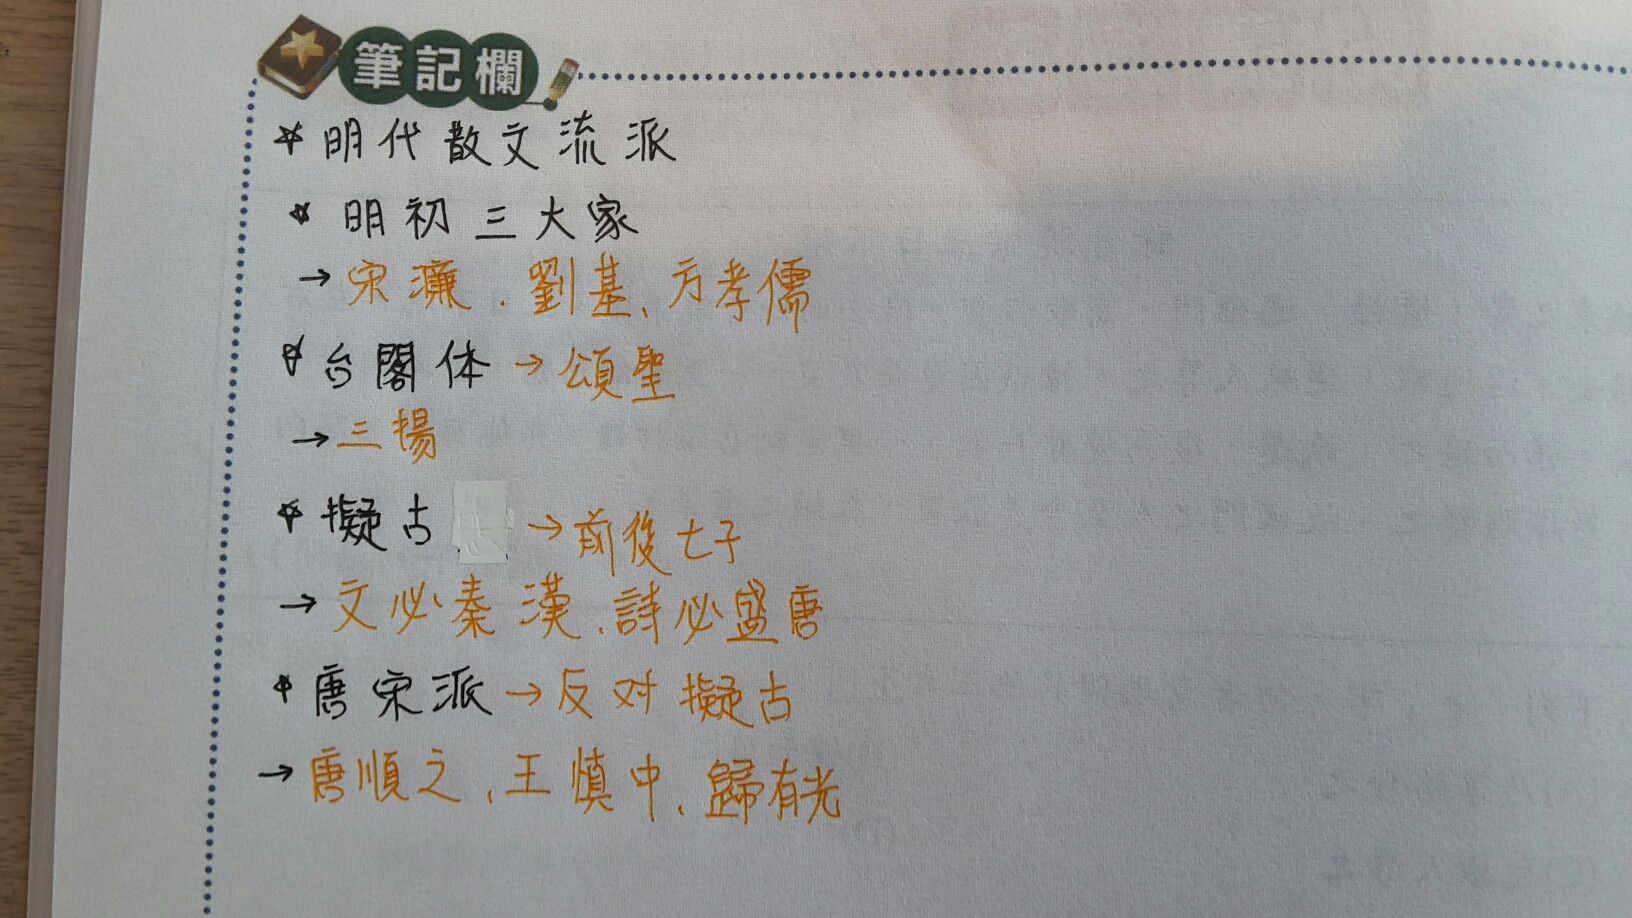 筆記欄
☆明代散文流派
☆ 明初三大家
→宋濂、劉基、方孝儒
☆台閣体→頌聖
→三揚
☆擬古 →前後七子
→文必秦漢、詩必盛唐
☆唐宋派→反对擬古
→唐順之、王慎中、歸有光